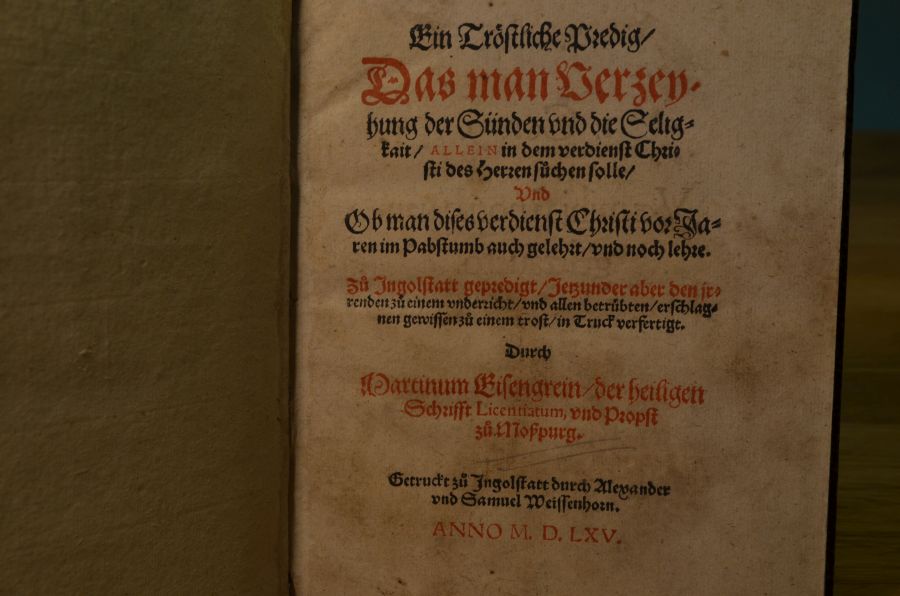 Ein Tröstliche Predig/
Das man Verzey-
hung der Sünden vnd die Selig-
kait/ ALLEIN in dem verdienst Chri-
sti des Herren sůchen solle/
Vnd
Ob man dises verdienst Christi vor Ja-
ren im Pabstumb auch gelehrt/vnd noch lehre.
Zů Ingolstatt gepredigt/Jetzunder aber den jr-
renden zů einem vnderricht/vnd allen betrübten/erschlag-
nen gewissen zů einem trost/in Truck verfertigt.
Durch
Martinum Eisengrein/der heiligen
Schrifft Licentiatum, vnd Propst
zů Moßpurg.
Getruckt zů Ingolstatt durch Alexander
vnd Samuel Weissenhorn.
ANNO M. D. LXV.